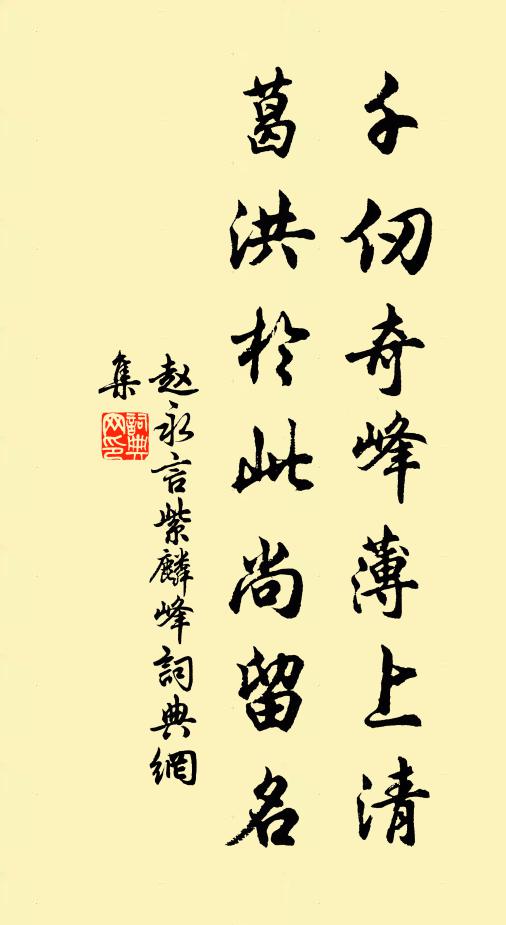 千仞奇峰薄上清
葛洪於此尚留名
赵永言紫麟峰詞典網
集
詞典网印